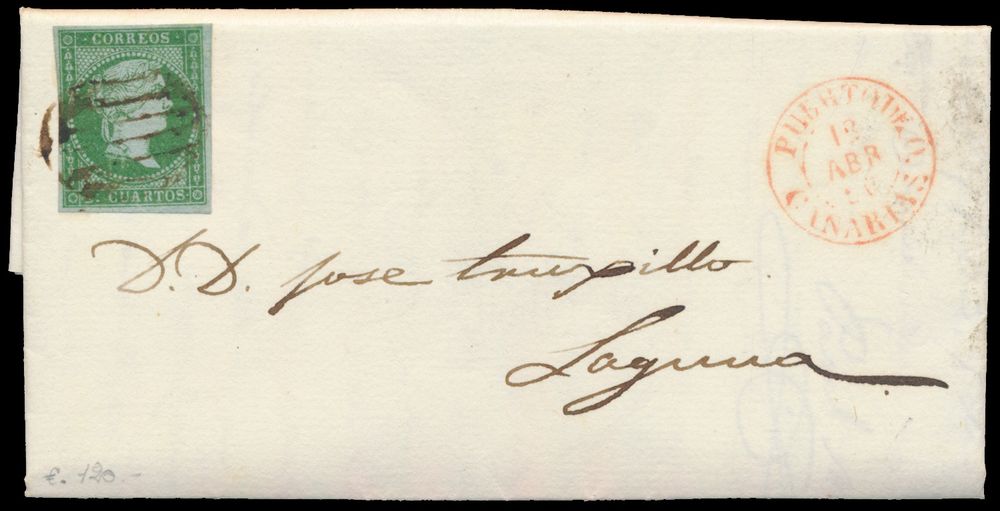 CORREOS
CUARTOS
PUERTO DE O.
18
ABR
CANARIAS
D. D. Jose truxillo
Laguna
€. 120.-